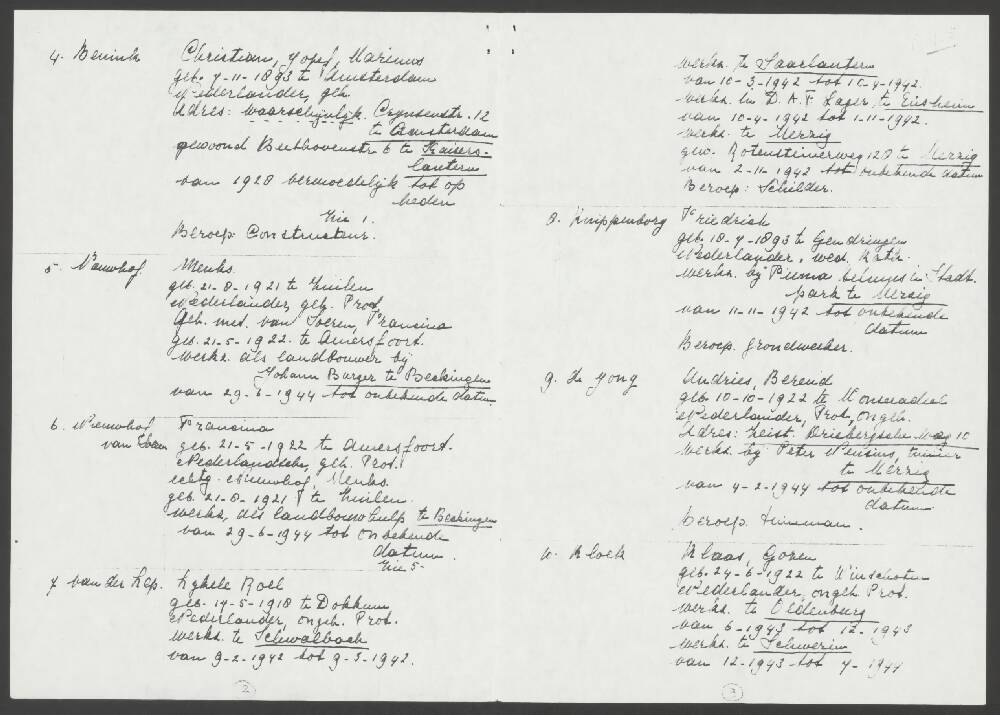 4. Benink Christiaan, Josef, Marinus
geb. 7-11-1893 te Amsterdam
Nederlander, geh.
Adres: waarschijnlijk Crynssenstr. 12
te Amsterdam
gewoond Beethovenstr 6 te Kaisers-
lautern
van 1928 vermoedelijk tot op
heden
Zie 1.
Beroep: Constructeur.
5. Nieuwhof Menks.
geb. 21-8-1921 te Zuilen
Nederlander, geh. Prot.
Geh. met. van Soeren, Francina
geb. 21-5-1922. te Amersfoort.
werkz. als landbouwer bij
Johann Burger te Beckingen
van 29-6-1944 tot onbekende datum
6. Nieuwhof Francina
van Soeren geb. 21-5-1922 te Amersfoort.
Nederlandsche, geh. Prot.
echtg. Nieuwhof, Menks.
geb. 21-8-1921 te Zuilen.
werkz. als landbouwhulp te Beckingen
van 29-6-1944 tot onbekende
datum.
Zie 5-
7 van der Lep. Lykele Roel
geb. 14-5-1918 te Dokkum
Nederlander, ongeh. Prot.
werkz. te Schwalbach
van 9-2-1942 tot 9-3-1942.
2
werkz. te Saarlautern
van 10-3-1942 tot 10-4-1942.
werkz. in D.A.F Lager te Ensheim
van 10-4-1942 tot 1-11-1942.
werkz. te Merzig
gew. Rotensteinerweg 128 te Merzig
van 2-11-1942 tot onbekende datum
Beroep: Schilder.
8. Knippenborg Friedrich
geb. 18-7-1893 te Gendringen
Nederlander, wed. Kath.
werkz. bij Firma in Stadt.
park te Merzig
van 11-11-1942 tot onbekende
datum
Beroep. Grondwerker.
9. de Jong Andries, Berend
geb. 10-10-1922 te Wonseradeel
Nederlander, Prot, ongeh.
Adres: Zeist. Driebergsche weg 10
werkz. bij Peter tuinier
te Merzig
van 4-2-1944 tot onbekende
datum
beroep. tuinman.
10. Kloek Klaas, Goren
geb. 24-6-1922 te Winschoten
Nederlander, ongeh. Prot.
werkz. te Oldenburg
van 6-1943 tot 12-1943
werkz. te Schwerin
van 12-1943 tot 4-1944
3